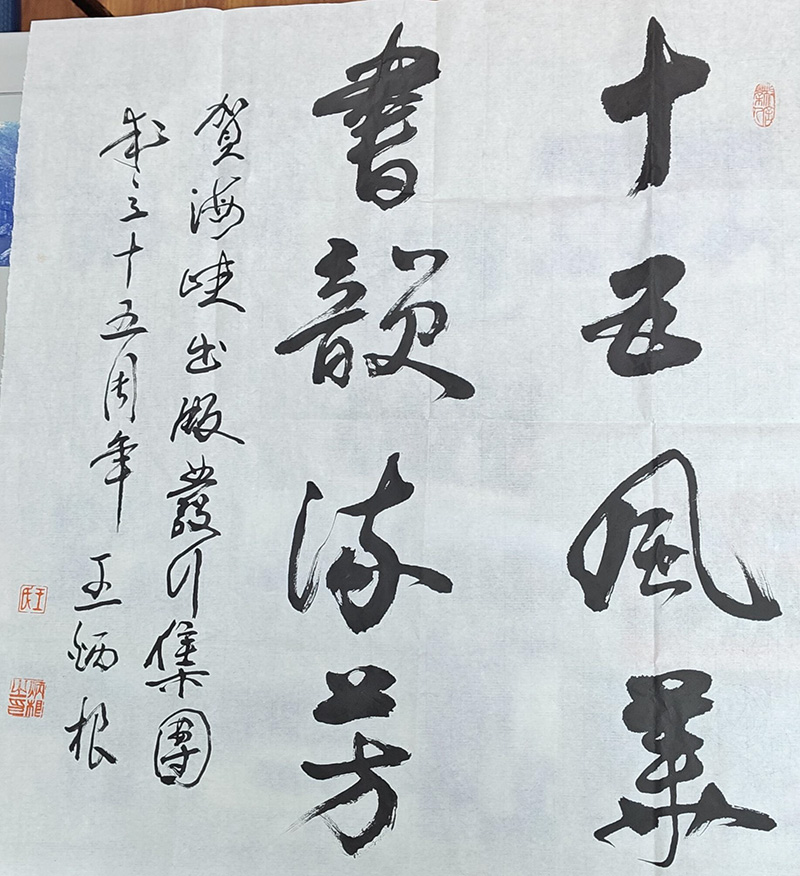 十五風華
書韻流芳
賀海峽出版發行集團
成立十五周年 王炳根
王氏
炳根之印